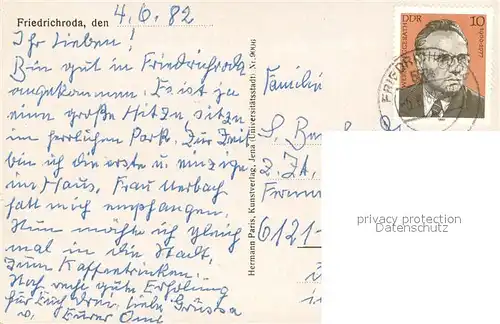 Friedrichroda, den 4.6.82
Ihr Lieben!
Bin gut in Friedrichroda
angekommen. Es ist ja
eine große Hitze sitze
im herrlichen Park. Zur Zeit
bin ich die erste u. einzige
im Haus, Frau
hatt mich empfangen.
Nun möchte ich gleich
mal in die Stadt,
zum Kaffeetrinken.
Noch recht gute Erholung
für Euch drei, liebe Grüsse
v. Eurer Omi
Hermann Paris, Kunstverlag, Jena (Universitätsstadt) Nr. 9006
DDR
10
1900-1977
FRIEDRICH
Familie
S.
6121-
privacy protection
Datenschutz